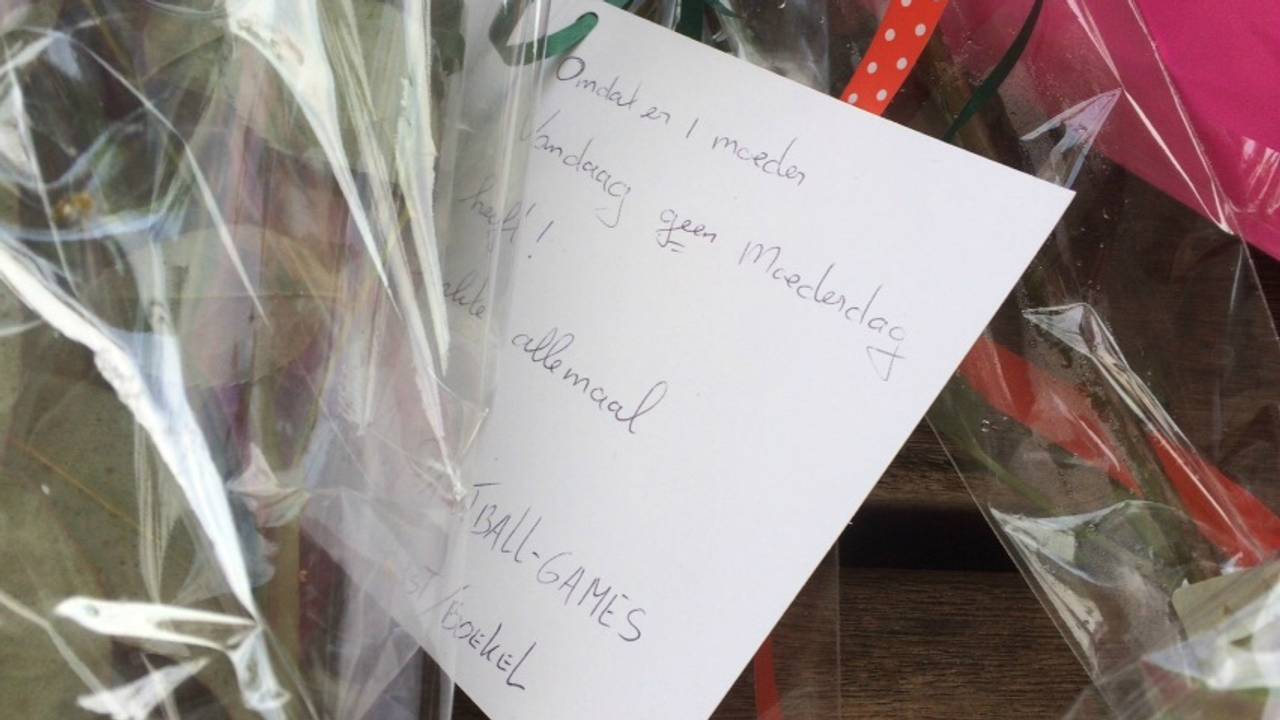 Omdat er 1 moeder
Vandaag geen Moederdag
heeft!
allemaal
TBALL-GAMES
ST/BOEKEL